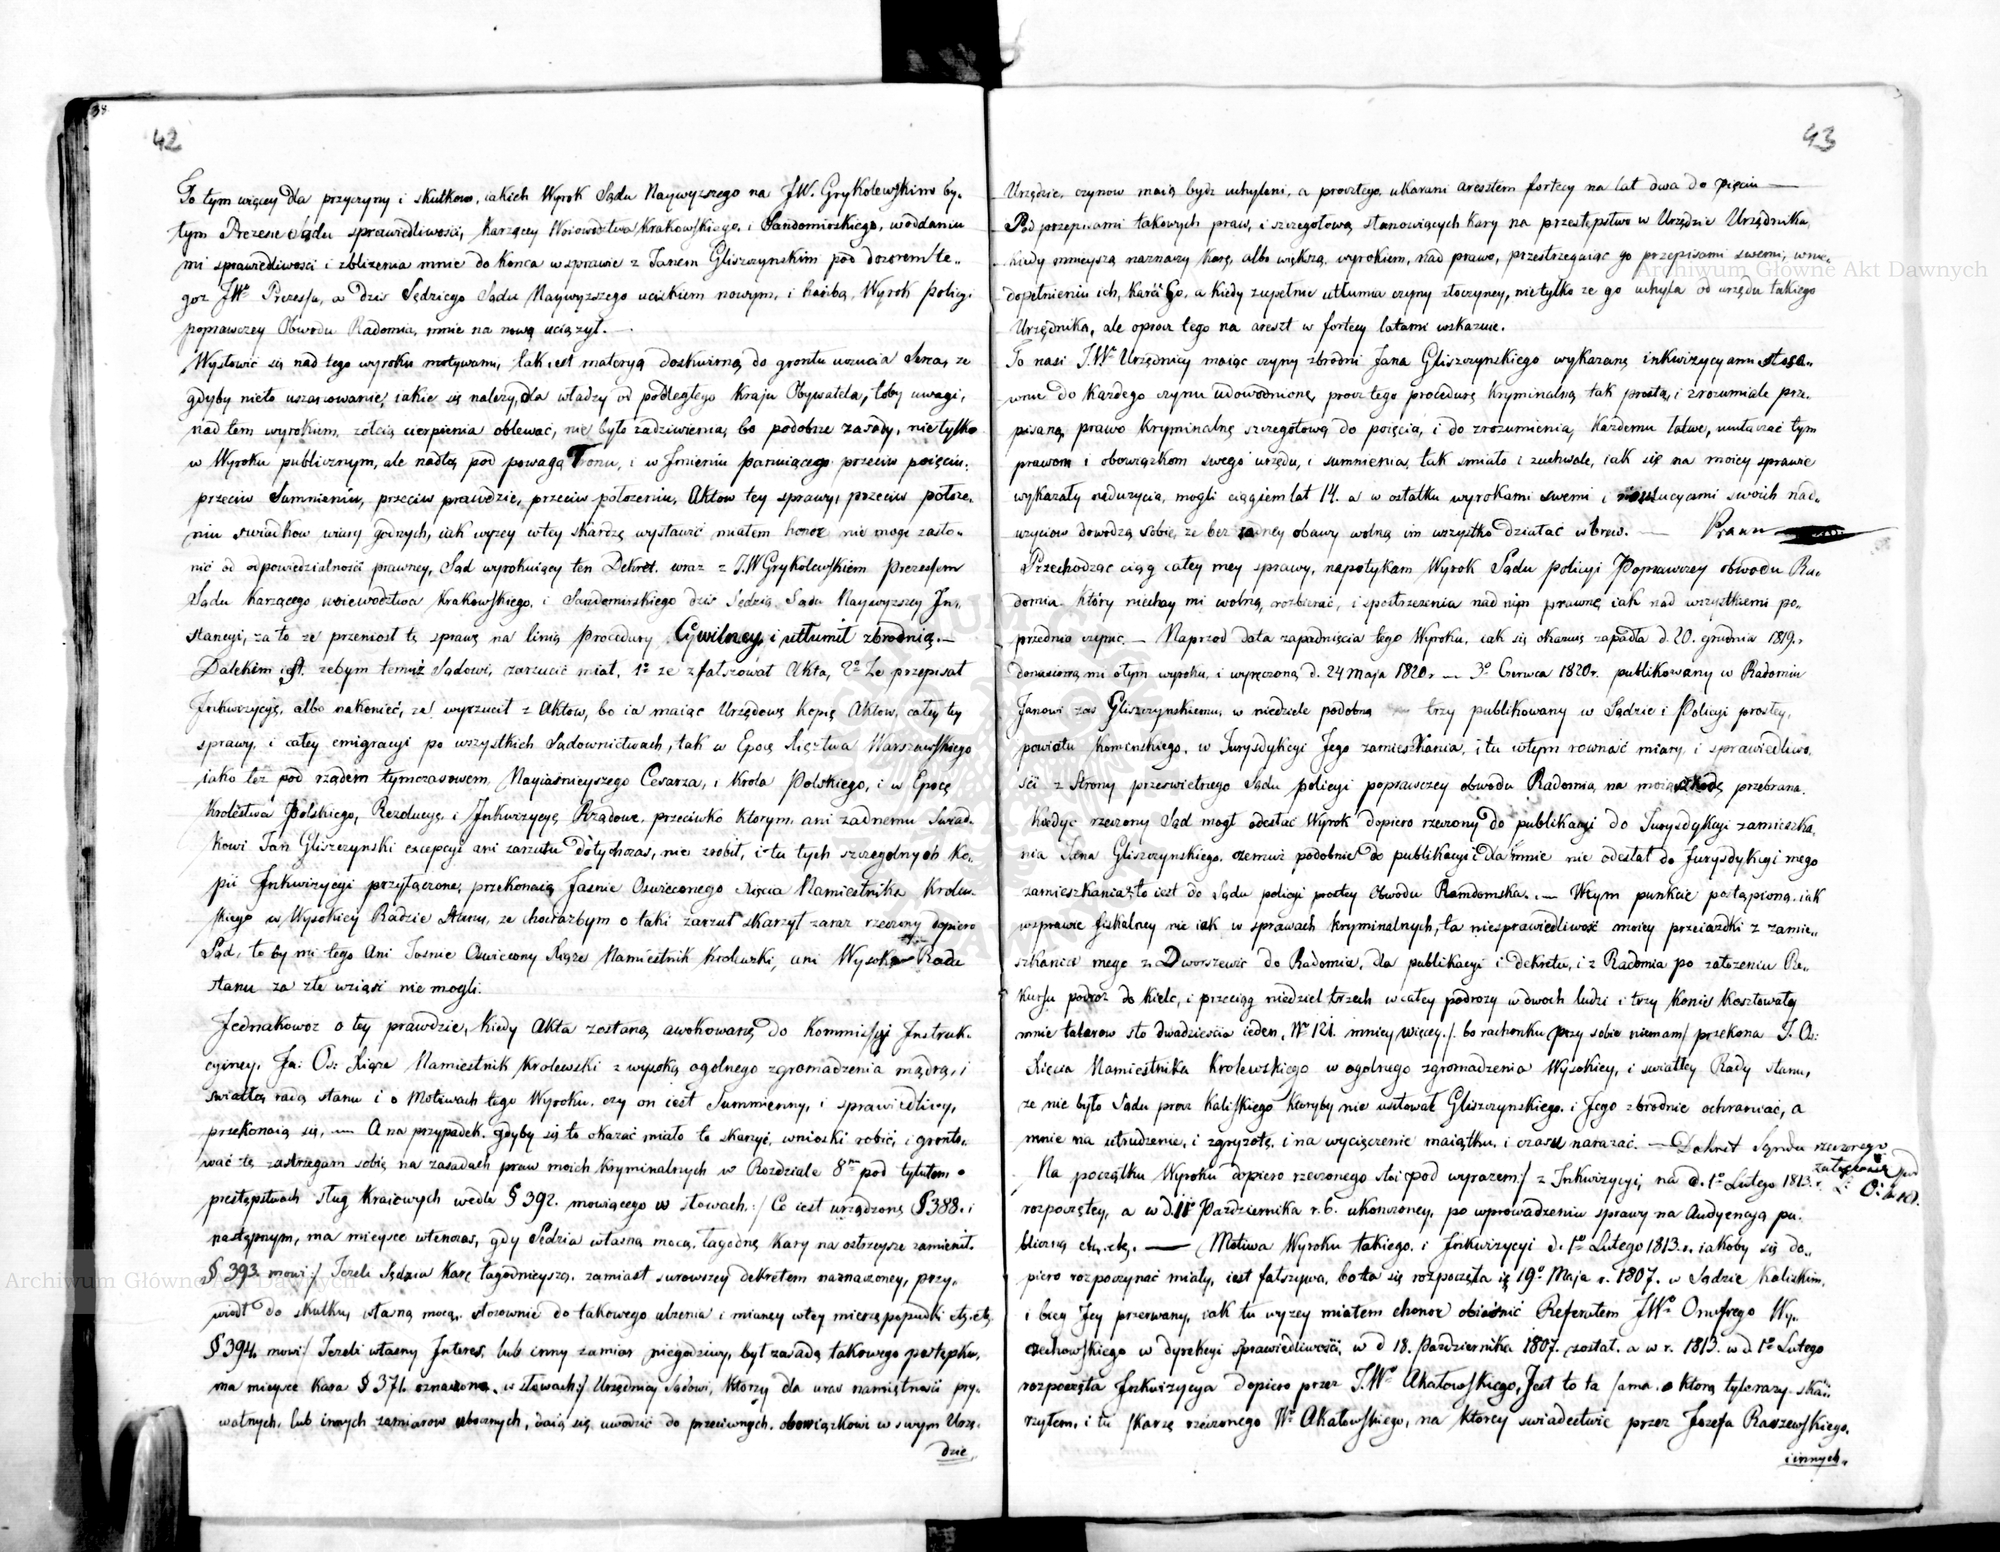 42
To tym więcey dla przyczyny i skutkow, iakich Wyrok Sądu Naywyzszego na JW. Grykolewskim by-
łym Prezesie Sądu sprawiedliwości, Karzącey Woiewodztwa Krakowskiego, i Sandomirskiego, w oddaniu
mi sprawiedliwości i zbliżenia mnie do Konca w sprawie z Janem Gliszczynskim pod dozorem te-
goz JWo Prezessa, a dziś Sędziego Sądu Naywyzszego uciskiem nowym, i hańbą, Wyrok Policyi
poprawczey Obwodu Radomia, mnie na nowo uciążył. —
Wysłowić się nad tego wyroku motywami, tak iest materyą doskwirną do gruntu uczucia Serca, ze
gdyby nie to uszanowanie, iakie się nalezy, dla władzy od podległego Kraju Obywatela, toby uwagi,
nad tem wyrokiem, zołcią cierpienia oblewać, nie było zadziwienia, bo podobne zasady, nie tylko
w Wyroku publicznym, ale nadto pod powagą Tronu, i w Jmieniu panuiącego przeciw poięciu,
przeciw Sumnieniu, przeciw prawdzie, przeciw położeniu, Aktow tey sprawy, przeciw położe-
niu swiadkow wiary godnych, iak wyzey w tey skardze wystawić miałem honor nie mogą zasło-
nić od odpowiedzialności prawney, Sąd wyrokuiący ten Dekret, wraz z J.W Grykolewskiem Prezessem
Sądu Karzącego woiewodztwa Krakowskiego, i Sandomirskiego dziś Sędzią Sądu Naywyzszey In-
stancyi, za to ze przeniosł tę sprawę na linią Procedury Cywilney, i utłumił zbrodnią. —
Dalekim iest, zebym temuz Sądowi, zarzucić miał, 1o ze zfałszował Akta, 2o Ze przepisał
Jnkwizycyę, albo nakoniec, ze wyrzucił z Aktow, bo ia maiąc Urzędową Kopię Aktow, całey tey
sprawy, i całey emigracyi po wszystkich Sądownictwach, tak w Epoce Xięztwa Warszawskiego
iako też pod rządem tymczasowem, Nayiaśnieyszego Cesarza, i Krola Polskiego, i w Epoce
Krolestwa Polskiego, Rezolucye, i Jnkwizycye Rządowe, przeciwko ktorym, ani zadnemu Swiad-
kowi Jan Gliszczynski excepcyi ani zarzutu dotychczas, nie zrobił, i tu tych szczegolnych Ko-
pii Jnkwizycyi przyłączone, przekonaią Jasnie Oswieconego Xięcia Namiestnika Krolew-
skiego w Wysokiey Radzie Stanu, ze chociażbym o taki zarzut skarzył zaraz rzeczony dopiero
Sąd, to by mi tego Ani Jasnie Oswiecony Xiąze Namiestnik Krolewski, ani Wysoka Rada
stanu za złe wziąść nie mogli.
Jednakowoz o tey prawdzie, kiedy Akta zostaną awokowane do Kommissyi Instruk-
cyiney, Ja: Os: Xiąze Namiestnik Krolewski z wysoką ogolnego zgromadzenia mądrą, i
światłą radą stanu i o Motiwach tego Wyroku, czy on iest Summienny, i sprawiedliwy,
przekonaią się. — A na przypadek, gdyby się to okazać miało to skarzyć, wnioski robić, i grunto-
wać te zastrzegam sobie, na zasadach praw moich kryminalnych w Rozdziale 8m pod tytułem o
przestępstwach sług Kraiowych wedle § 392. mowiącego w słowach:/ Co iest urządzone § 388. i
następnym, ma mieysce wtenczas, gdy Sędzia własną mocą, łagodną Karę na ostrzeysze zamienił.
§ 393. mowi:/ Jezeli Sędzia Karę łagodnieyszą, zamiast surowszey dekretem naznaczoney, przy-
wiodł do skutku, własną mocą, stosownie do takowego ulzenia i mianey w tey mierze popudki etc. etc.
§ 394. mowi:/ Jezeli własny Jnteres, lub inny zamiar niegodziwy, był zasadą takowego postępku,
ma mieysce Kara § 371. oznaczona, w słowach:/ Urzędnicy Sądowi, ktorzy dla uraz namiętności pry-
watnych, lub innych zamiarow ubocznych, daią się uwodzić do przeciwnych, obowiązkowi w swym Urzę-
dzie,
43
Urzędzie, czynow maią bydz uchyleni, a procz tego, ukarani aresztem fortecy na lat dwa do pięciu —
Pod przepisami takowych praw, i szczegołową stanowiących Kary na przestępstwo w Urzędzie Urzędnika,
kiedy mnieyszą naznaczy Karę, albo większą, wyrokiem, nad prawo, przestrzegaiąc go przepisami swemi, w nie-
dopełnieniu ich, karać Go, a kiedy zupełnie utłumia czyny złoczyncy, nie tylko ze go uchyla od urzędu takiego
Urzędnika, ale oprocz tego na areszt w fortecy latami wskazuie.
To nasi J.Wi Urzędnicy maiąc czyny zbrodni Jana Gliszczynskiego wykazane inkwizycyami stoso-
wnie do Kazdego czynu udowodnione, procz tego procedurę Kryminalną tak prostą, i zrozumiale prze-
pisaną, prawo Kryminalne szczegołową do poięcia, i do zrozumienia, Kazdemu łatwe, uwłaczać tym
prawom i obowiązkom swego urzędu, i sumnienia, tak smiało i zuchwale, iak się na moiey sprawie
wykazały naduzycia, mogli ciągiem lat 14. a w ostatku wyrokami swemi i rezolucyami swoich nad-
uzyciow dowodzą sobie, ze bez zadney obawy wolno im wszystko działać wbrew. — Prawu
Przechodząc ciąg całey mey sprawy, napotykam Wyrok Sądu Policyi Poprawczey obwodu Ra-
domia który niechay mi wolno, rozbierać, i spostrzezenia nad nim prawne, iak nad wszystkiemi po-
przednio czynić. — Naprzod data zapadnięcia tego Wyroku, iak się okazuie zapadła d. 20. grudnia 1819.
doniesiona mi o tym wyroku, i wyręczona d. 24 Maja 1820r — 3o Czerwca 1820r. publikowany w Radomiu
Janowi zaś Gliszczynskiemu, w niedziele podobno trzy publikowany w Sądzie i Policyi prostey,
powiatu Konenskiego, w Jurysdykcyi Jego zamieszkania, i tu w tym rowność miary, i sprawiedliwo-
ści z Strony prześwietnego Sądu policyi poprawczey obwodu Radomia, na moią szkodę przebrana.
Kiedyć rzeczony Sąd mogł odesłać Wyrok dopiero rzeczony do publikacyi do Jurysdykcyi zamieszka-
nia Jana Gliszczynskiego, czemuż podobnie do publikacyi i dla mnie nie odesłał do Jurysdykcyi mego
zamieszkania, to iest do Sądu policyi prostey Obwodu Radomska. — W tym punkcie postąpiono, iak
w sprawie fiskalney nie iak w sprawach kryminalnych, ta niesprawiedliwość moiey przeiazdki z zamie-
szkania mego z Dworszewic do Radomia, dla publikacyi i dekretu, i z Radomia po założeniu Re-
kursu podroż do Kielc, i przeciąg niedziel trzech w całey podrozy w dwoch ludzi i trzy konie kosztowały
mnie talarow sto dwadzieścia ieden, No 121. mniey więcey./. bo rachunku przy sobie niemam/ przekona J. Os:
Xięcia Namiestnika Krolewskiego w ogolnego zgromadzenia Wysokiey, i swiatłey Rady stanu,
ze nie było Sądu procz Kaliskiego Ktoryby nie usiłował Gliszczynskiego, i Jego zbrodnie ochraniać, a
mnie na utrudzenie, i zgryzotę, i na wycięczenie maiątku, i czasu narazać. — Dekret Sądu rzeczonego
załączam pod L: O: 410.
Na początku Wyroku dopiero rzeczonego stoi pod wyrazem:/ z Jnkwizycyi, na d. 1o Lutego 1813.r.
rozpoczętey, a w d. 11o Października r. b. ukonczoney, po wprowadzeniu sprawy na Audyencyą pu-
bliczną etc. etc. — Motiwa Wyroku takiego, i Jnkwizycyi d. 1o Lutego 1813.r. iakoby się do-
piero rozpoczynać miały, iest fałszywa, bo ta się rozpoczęła ię 19o Maja r. 1807. w Sądzie Kaliskim,
i bieg Jey przerwany, iak tu wyzey miałem chonor obiaśnić Referatem JWo Onufrego Wy-
czechowskiego w dyrekcyi sprawiedliwości, w d 18. Pazdziernika 1807. został, a w r. 1813. w d 1o Lutego
rozpoczęta Jnkwizycya dopiero przez J.Wo Akatowskiego, Jest to ta sama, o ktorą tylerazy skar-
zyłem, i tu skarzę rzeczonego Wo Akatowskiego, na ktorey swiadectwie przez Jozefa Raszewskiego,
i innych,